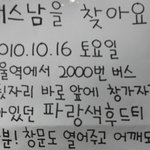 버스남을 찾아요
2010.10.16 토요일
울역에서 2000번 버스
자리 바로 앞에 창가자
있던 파랑색후드티
분! 창문도 열어주고 어깨도